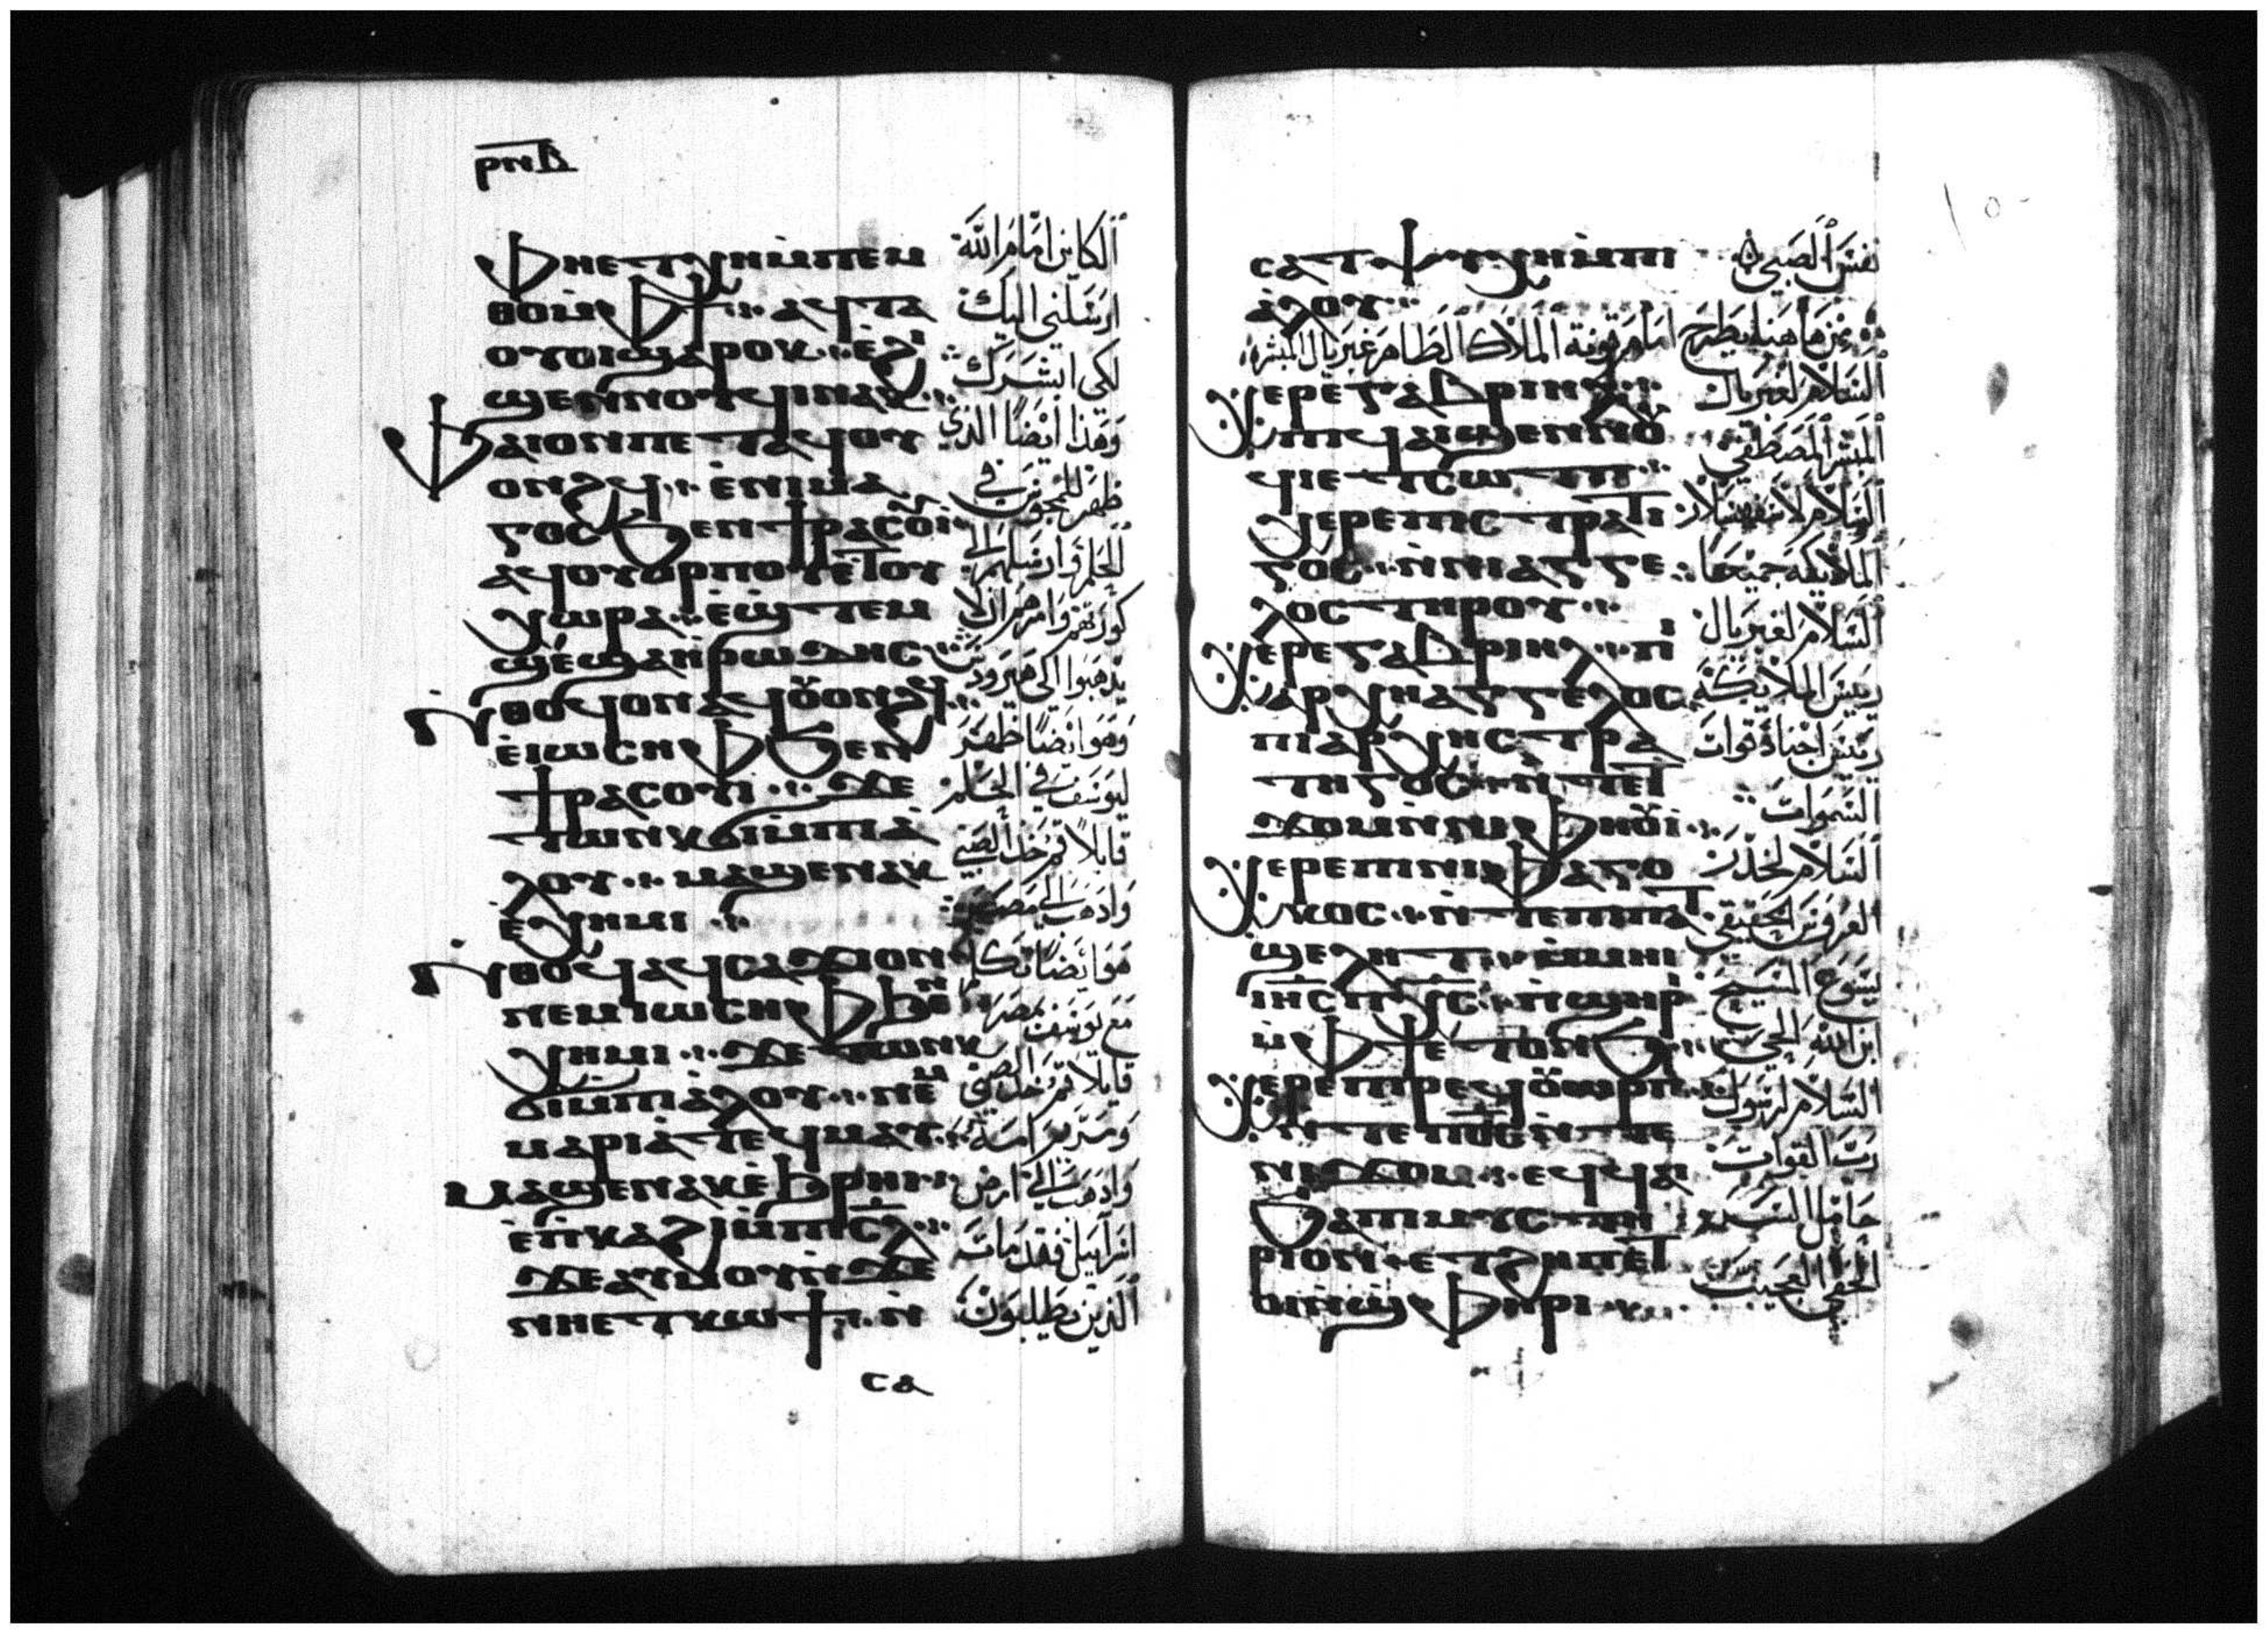 ⲣⲛⲇ
ⲫⲏⲉⲧⲭⲏⲙⲡⲉⲙ
ⲑⲟⲙⲫϯ ⲁϥⲧⲁ
ⲟⲩⲟⲓϣⲁⲣⲟⲕ ⲉϩⲓ
ϣⲉⲛⲛⲟⲩϥⲓⲛⲁⲕ
ⲫⲁⲓⲟⲛⲡⲉⲧⲁϥⲟⲩ
ⲟⲛϩϥ ⲉⲛⲓⲙⲁ
ⲅⲟⲥ ϧⲉⲛϯⲣⲁⲥⲟⲩⲓ
ⲁϥⲟⲩⲟⲣⲡⲟⲩⲉⲧⲟⲩ
ⲭⲱⲣⲁ ⲉϣⲧⲉⲙ
ϣⲉϣⲁⲏⲣⲱⲇⲏⲥ
ⲛⲑⲟϥⲟⲛⲁϥⲟⲩⲟⲛϩϥ
ⲉⲓⲱⲥⲏⲫϧⲉⲛ
ϯⲣⲁⲥⲟⲩⲓ ϫⲉ
ⲧⲱⲛⲕϭⲓⲙⲡⲓⲁ
ⲗⲟⲩ ⲙⲁϣⲉⲛⲁⲕ
ⲉⲭⲏⲙⲓ
ⲛⲑⲟϥⲁϥⲥⲁϫⲓⲟⲛ
ⲛⲉⲙⲓⲱⲥⲏⲫϧⲉⲛ
ⲭⲏⲙⲓ ϫⲉⲧⲱⲛⲕ
ϭⲓⲙⲡⲓⲁⲗⲟⲩ ⲛⲉⲙ
ⲙⲁⲣⲓⲁⲧⲉϥⲙⲁⲩ
ⲙⲁϣⲉⲛⲁⲕⲉϩⲣⲏⲓ
ⲉⲡⲕⲁϩⲓⲙⲡⲓⲥⲗ
ϫⲉⲁⲩⲙⲟⲩⲛϫⲉ
ⲛⲏⲉⲧⲕⲱϯ ⲛ
ⲥⲁ
الكاين امام الله
ارسلني اليك
لكي ابشرك
وهذا ايضا الذي
ظهر للمجوس في
الحلم وارسلهم الى
كورتهم وامرهم ان لا
يذهبوا الى هيرودس
وهو ايضا ظهر
ليوسف في الحلم
قايلا قم خذ الصبي
واذهب الى مصر
هو ايضا تكلم
مع يوسف بمصر
قايلا قم خذ الصبي
ومريم امه
واذهب الى ارض
اسراييل فقد مات
الذين يطلبون
ⲥⲁⲧⲯⲩⲭⲏⲙⲡⲓ
ⲁⲗⲟⲩ
ⲭⲉⲣⲉⲅⲁⲃⲣⲓⲏⲗ
ⲡⲓϥⲁⲓϣⲉⲛⲛⲟⲩ
ϥⲓⲉⲧⲥⲱⲧⲡ
ⲭⲉⲣⲉⲡⲓⲥⲧⲣⲁⲧⲓ
ⲅⲟⲥ ⲛⲛⲓⲁⲅⲅⲉ
ⲗⲟⲥⲧⲏⲣⲟⲩ
ⲭⲉⲣⲉⲅⲁⲃⲣⲓⲏⲗ ⲡⲓ
ⲁⲣⲭⲏⲁⲅⲅⲉⲗⲟⲥ
ⲡⲓⲁⲣⲭⲏⲥⲧⲣⲁ
ⲧⲏⲅⲟⲥ ⲛⲧⲉⲧ
ϫⲟⲙⲛⲛⲓⲫⲏⲟⲩⲓ
ⲭⲉⲣⲉⲡⲓⲛⲓⲫⲁⲅⲟ
ⲕⲟⲥ ⲛⲧⲉⲡⲓⲡⲁⲧ
ϣⲉⲗⲏⲧ ⲙⲙⲏⲓ
ⲓⲏⲥⲡⲭⲥ ⲡϣⲏⲣⲓ
ⲙⲫϯⲉⲧⲟⲛϧ
ⲭⲉⲣⲉⲡⲓⲣⲉϥⲟⲩⲱⲣⲡ
ⲛⲧⲉⲡⲟⲥⲛⲧⲉ
ⲛⲓϫⲟⲙ ⲉϥϥⲁⲓ
ϧⲁⲡⲓⲙⲩⲥⲧⲏ
ⲣⲓⲟⲛ ⲉⲧϩⲏⲡⲉⲧ
ⲟⲓⲛϣⲫⲏⲣⲓ
نفس الصبي
من هاهنا يطرح امام قونة الملاك الطاهر غبريال المبشر
السلام لغبريال
المبشر المصطفى
الملايكة جميعا
السلام لغبريال
رييس الملايكة
رييس اجناد قوات
السموات
السلام لخدر
العروس الحقيقي
يسوع المسيح
ابن الله الحي
السلام لرسول
رب القوات
حامل السر
الخفي العجيب